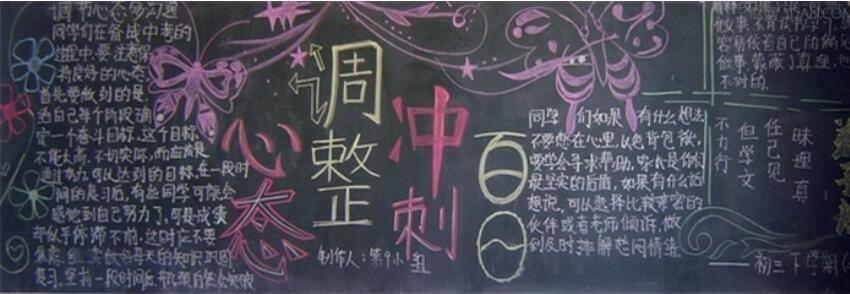 调节心态多沟通
同学们在备战中考的
过程中,要注意保
持良好的心态
首先要做到的是
给自己每个阶段确
定一个奋斗目标,这个目标
不能太高,不切实际,而应该是
通过努力可以达到的目标,在一段时
间的复习后,有些同学可能会
感觉到自己努力了,可是成绩
却似乎停滞不前,这时应不要
复习,坚持一段时间后
调整
心态
冲刺
百日
制作人:第9小组
同学们如果有什么想法
不要憋在心里,以免背包袱,
要学会寻求帮助,家人是你们
最坚实的后盾,如果有什么话
想说,可以选择比较亲密的
伙伴或者老师倾诉,做
到及时排解愁闷情绪
做事,蒙蔽了真理,也
不对的.
昧理真
任己见
但学文
不力行
初三下学期